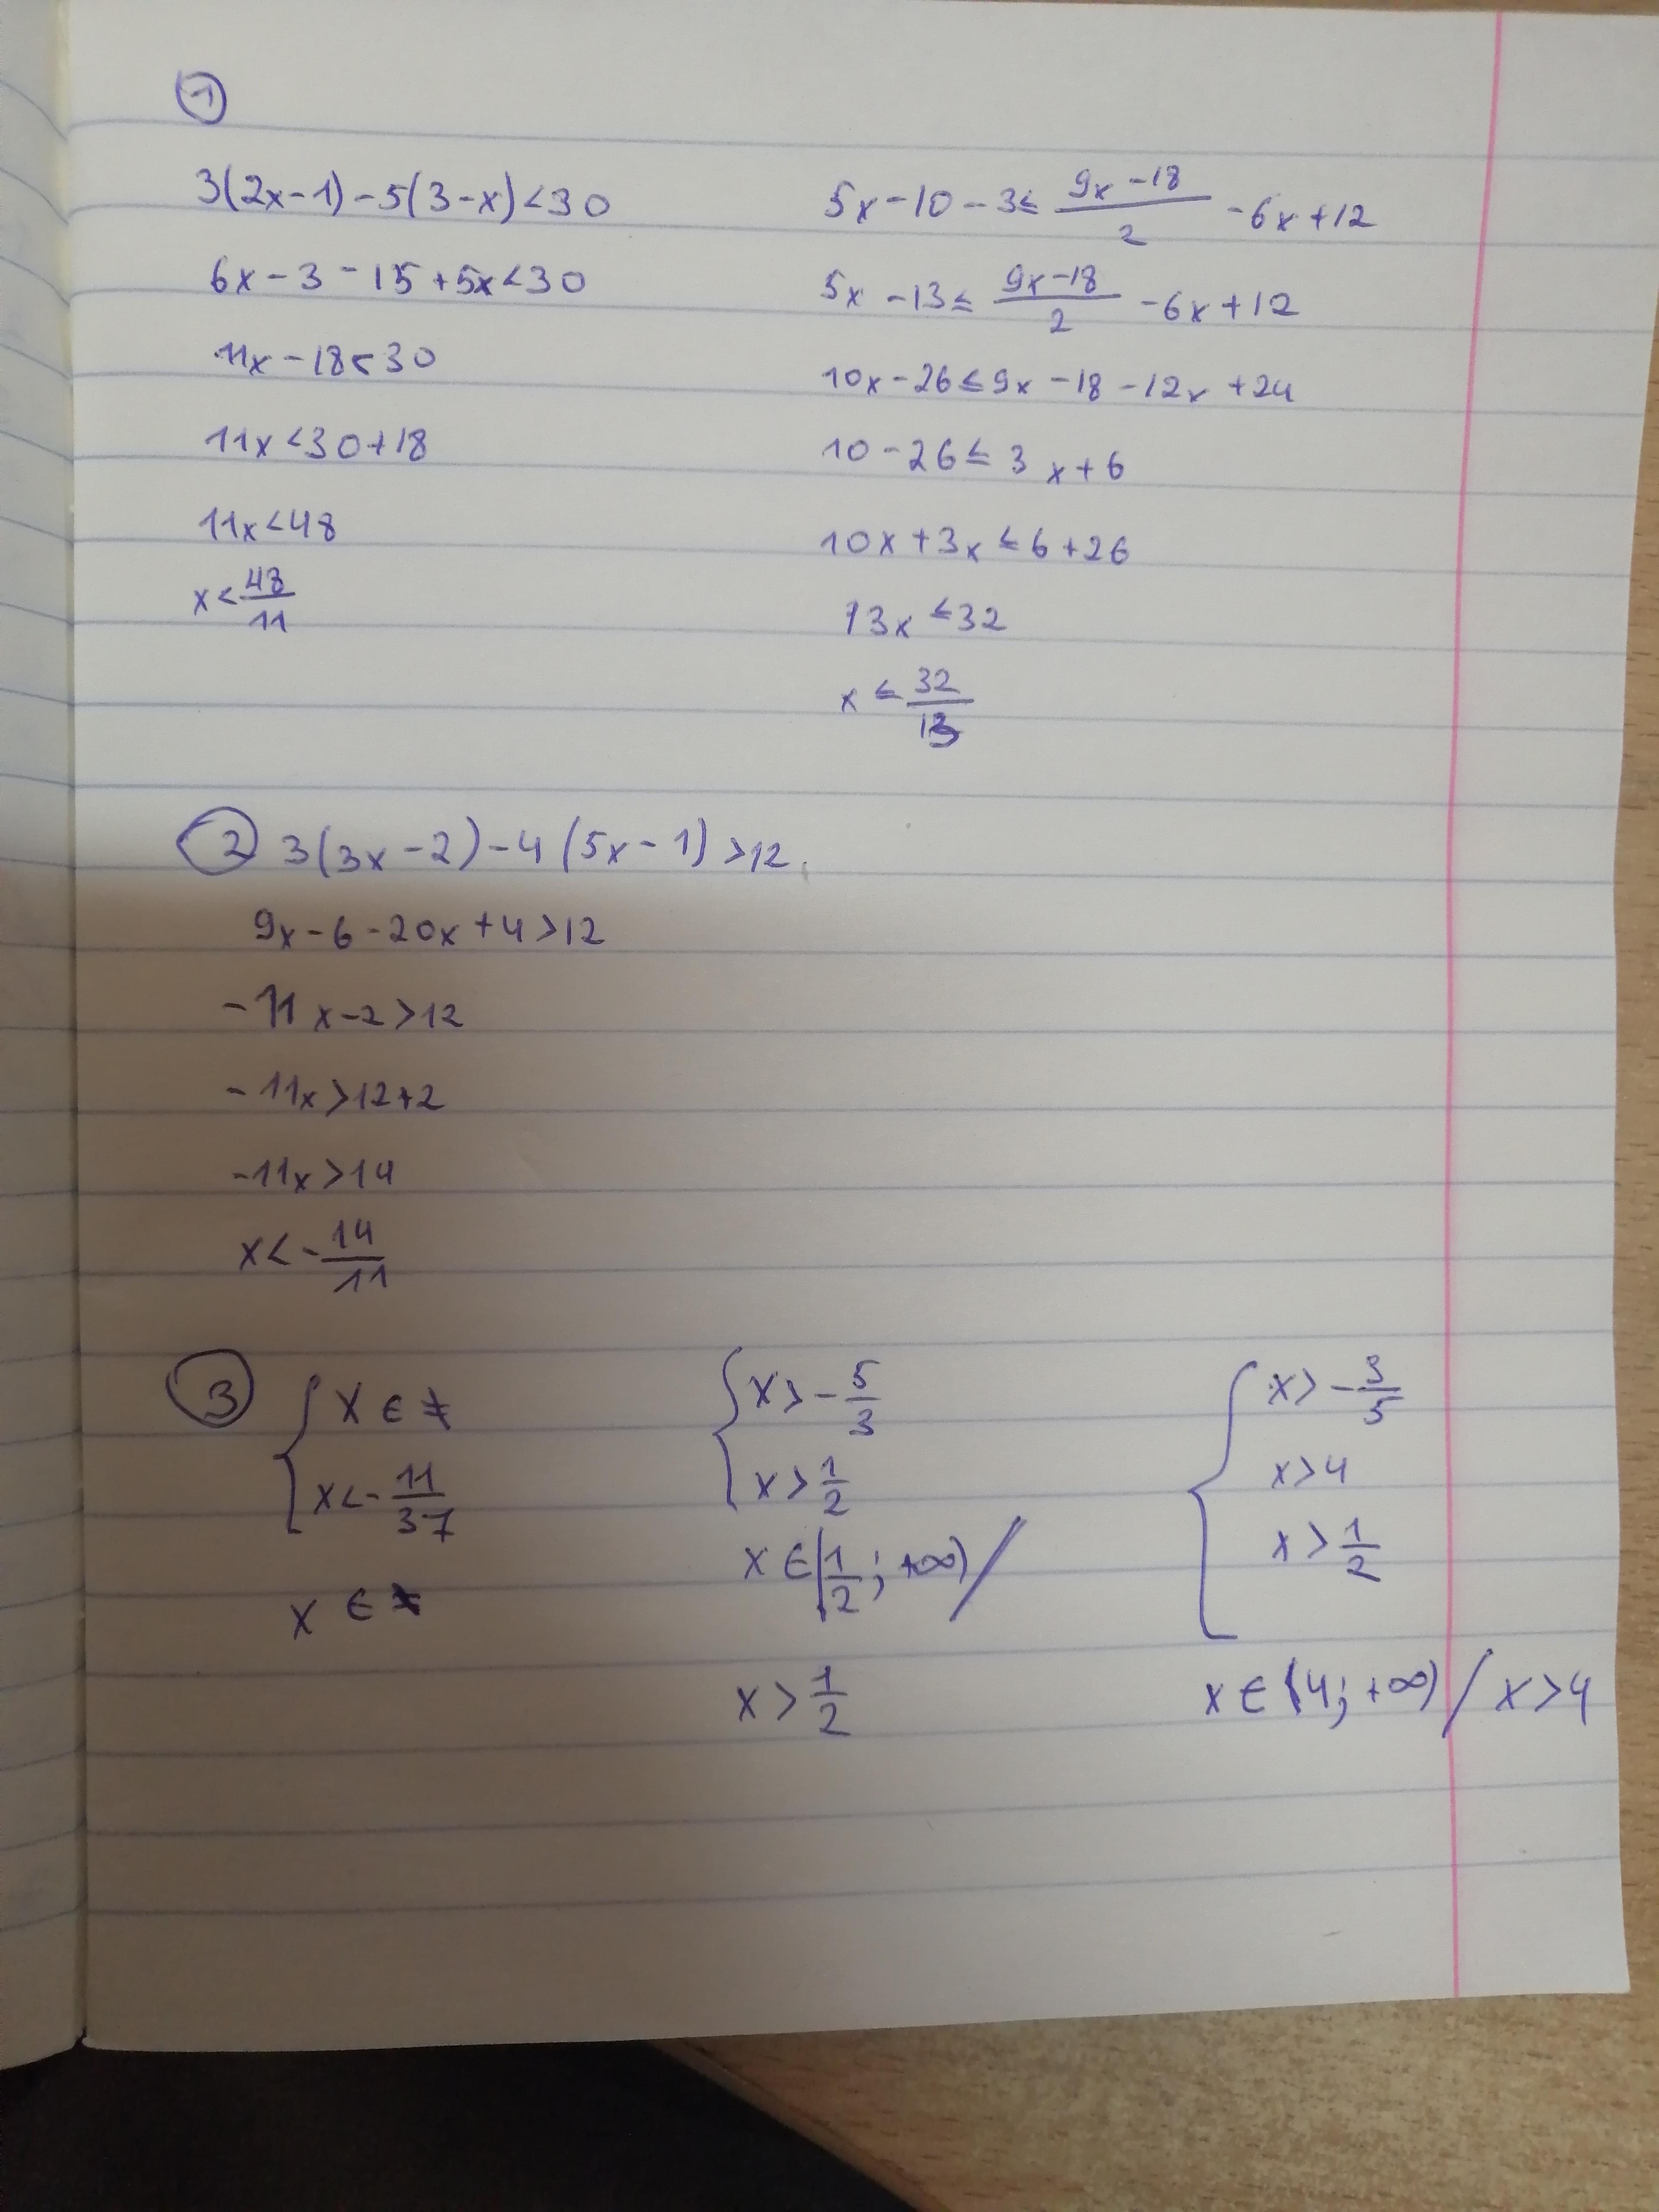 1
3(2x-1)-5(3-x)<30
6x-3-15+5x<30
11x-18<30
11x<30+18
11x<48
x<48/11
5x-10-3≤(9x-18)/2-6x+12
5x-13≤(9x-18)/2-6x+12
10x-26≤9x-18-12x+24
10-26≤3x+6
10x+3x≤6+26
13x≤32
x≤32/13
2 3(3x-2)-4(5x-1)>12
9x-6-20x+4>12
-11x-2>12
-11x>12+2
-11x>14
x<-14/11
3
{x∈
x<-11/37
x∈
{x>-5/3
x>1/2
x∈(1/2;+∞)/
x>1/2
{x>-3/5
x>4
x>1/2
x∈(4;+∞)/x>4